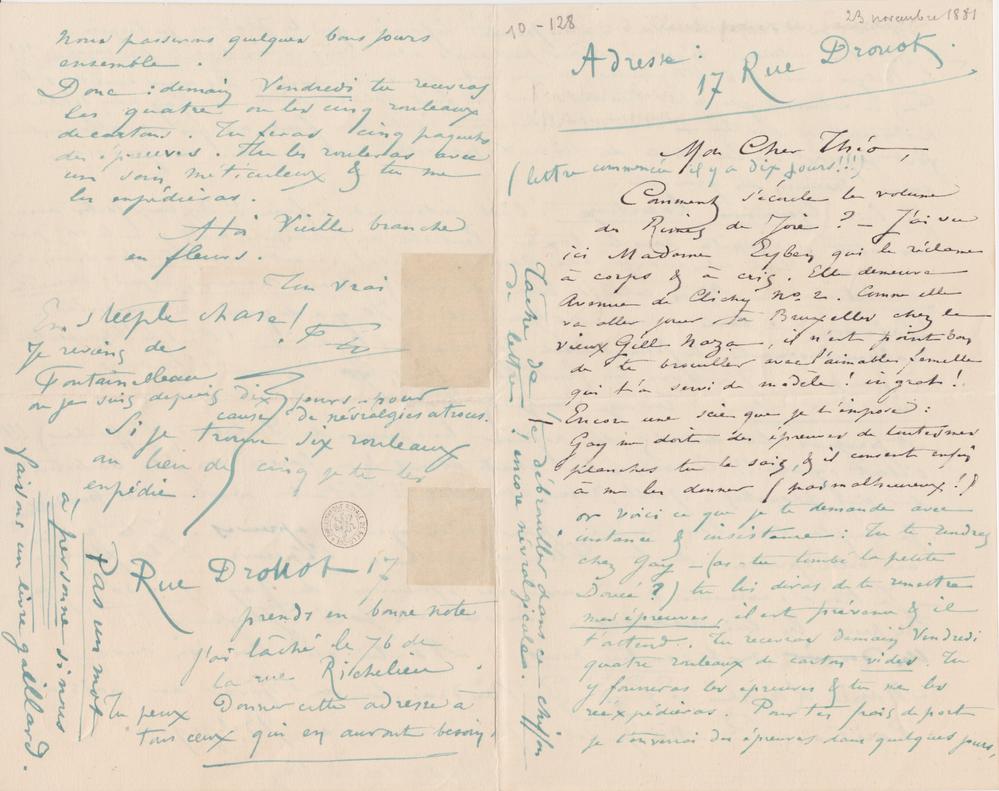 10 - 128
23 novembre 1881
Adresse :
17 Rue Drouot.
Mon Cher Théo,
(lettre commencée il y a dix jours!!!)
Comment s'écoule le volume
des Rimes de Joie ? – J'ai vu
ici Madame Eyben qui le réclame
à corps & à cris. Elle demeure
Avenue de Clichy no 2. Comme elle
va aller jouer à Bruxelles chez le
vieux Gill Naza, il n'est point bon
de te brouiller avec l'aimable femelle
qui t'a servi de modèle ! ingrat !
Encore une scie que je t'impose :
Gay me doit des épreuves de toutes mes
planches tu le sais, & il consent enfin
à me les donner (pas malheureux !)
or voici ce que je te demande avec
instance & insistance : Tu te rendras
chez Gay – (as-tu tombé la petite
Doucé ?) tu lui diras de te remettre
mes épreuves, il est prévenu & il
t'attend. Tu recevras demain Vendredi
quatre rouleaux de carton vides. Tu
y fourreras les épreuves & tu me les
réexpédieras. Pour tes frais de port
je t'enverrai des épreuves dans quelques jours,
Tâche de te débrouiller dans ce chiffon
de lettre ! encore névralgicules.
Nous passerons quelques bons jours
ensemble.
Donc : demain Vendredi tu recevras
les quatre ou les cinq rouleaux
de cartons. Tu feras cinq paquets
des épreuves. Tu les rouleras avec
un soin méticuleux & tu me
les expédieras.
A toi Vieille branche
en fleurs.
Ton vrai
En steeple chase !
Je reviens de
Fontainebleau
où je suis depuis dix jours – pour
cause de névralgies atroces.
Si je trouve six rouleaux
au lieu de cinq je te les
expédie.
Rue Drouot 17
prends en bonne note
j'ai lâché le 76 de
la rue Richelieu.
Tu peux Donner cette adresse à
tous ceux qui en auront besoin !
Pas un mot
à personne si nous
faisons un livre gaillard.